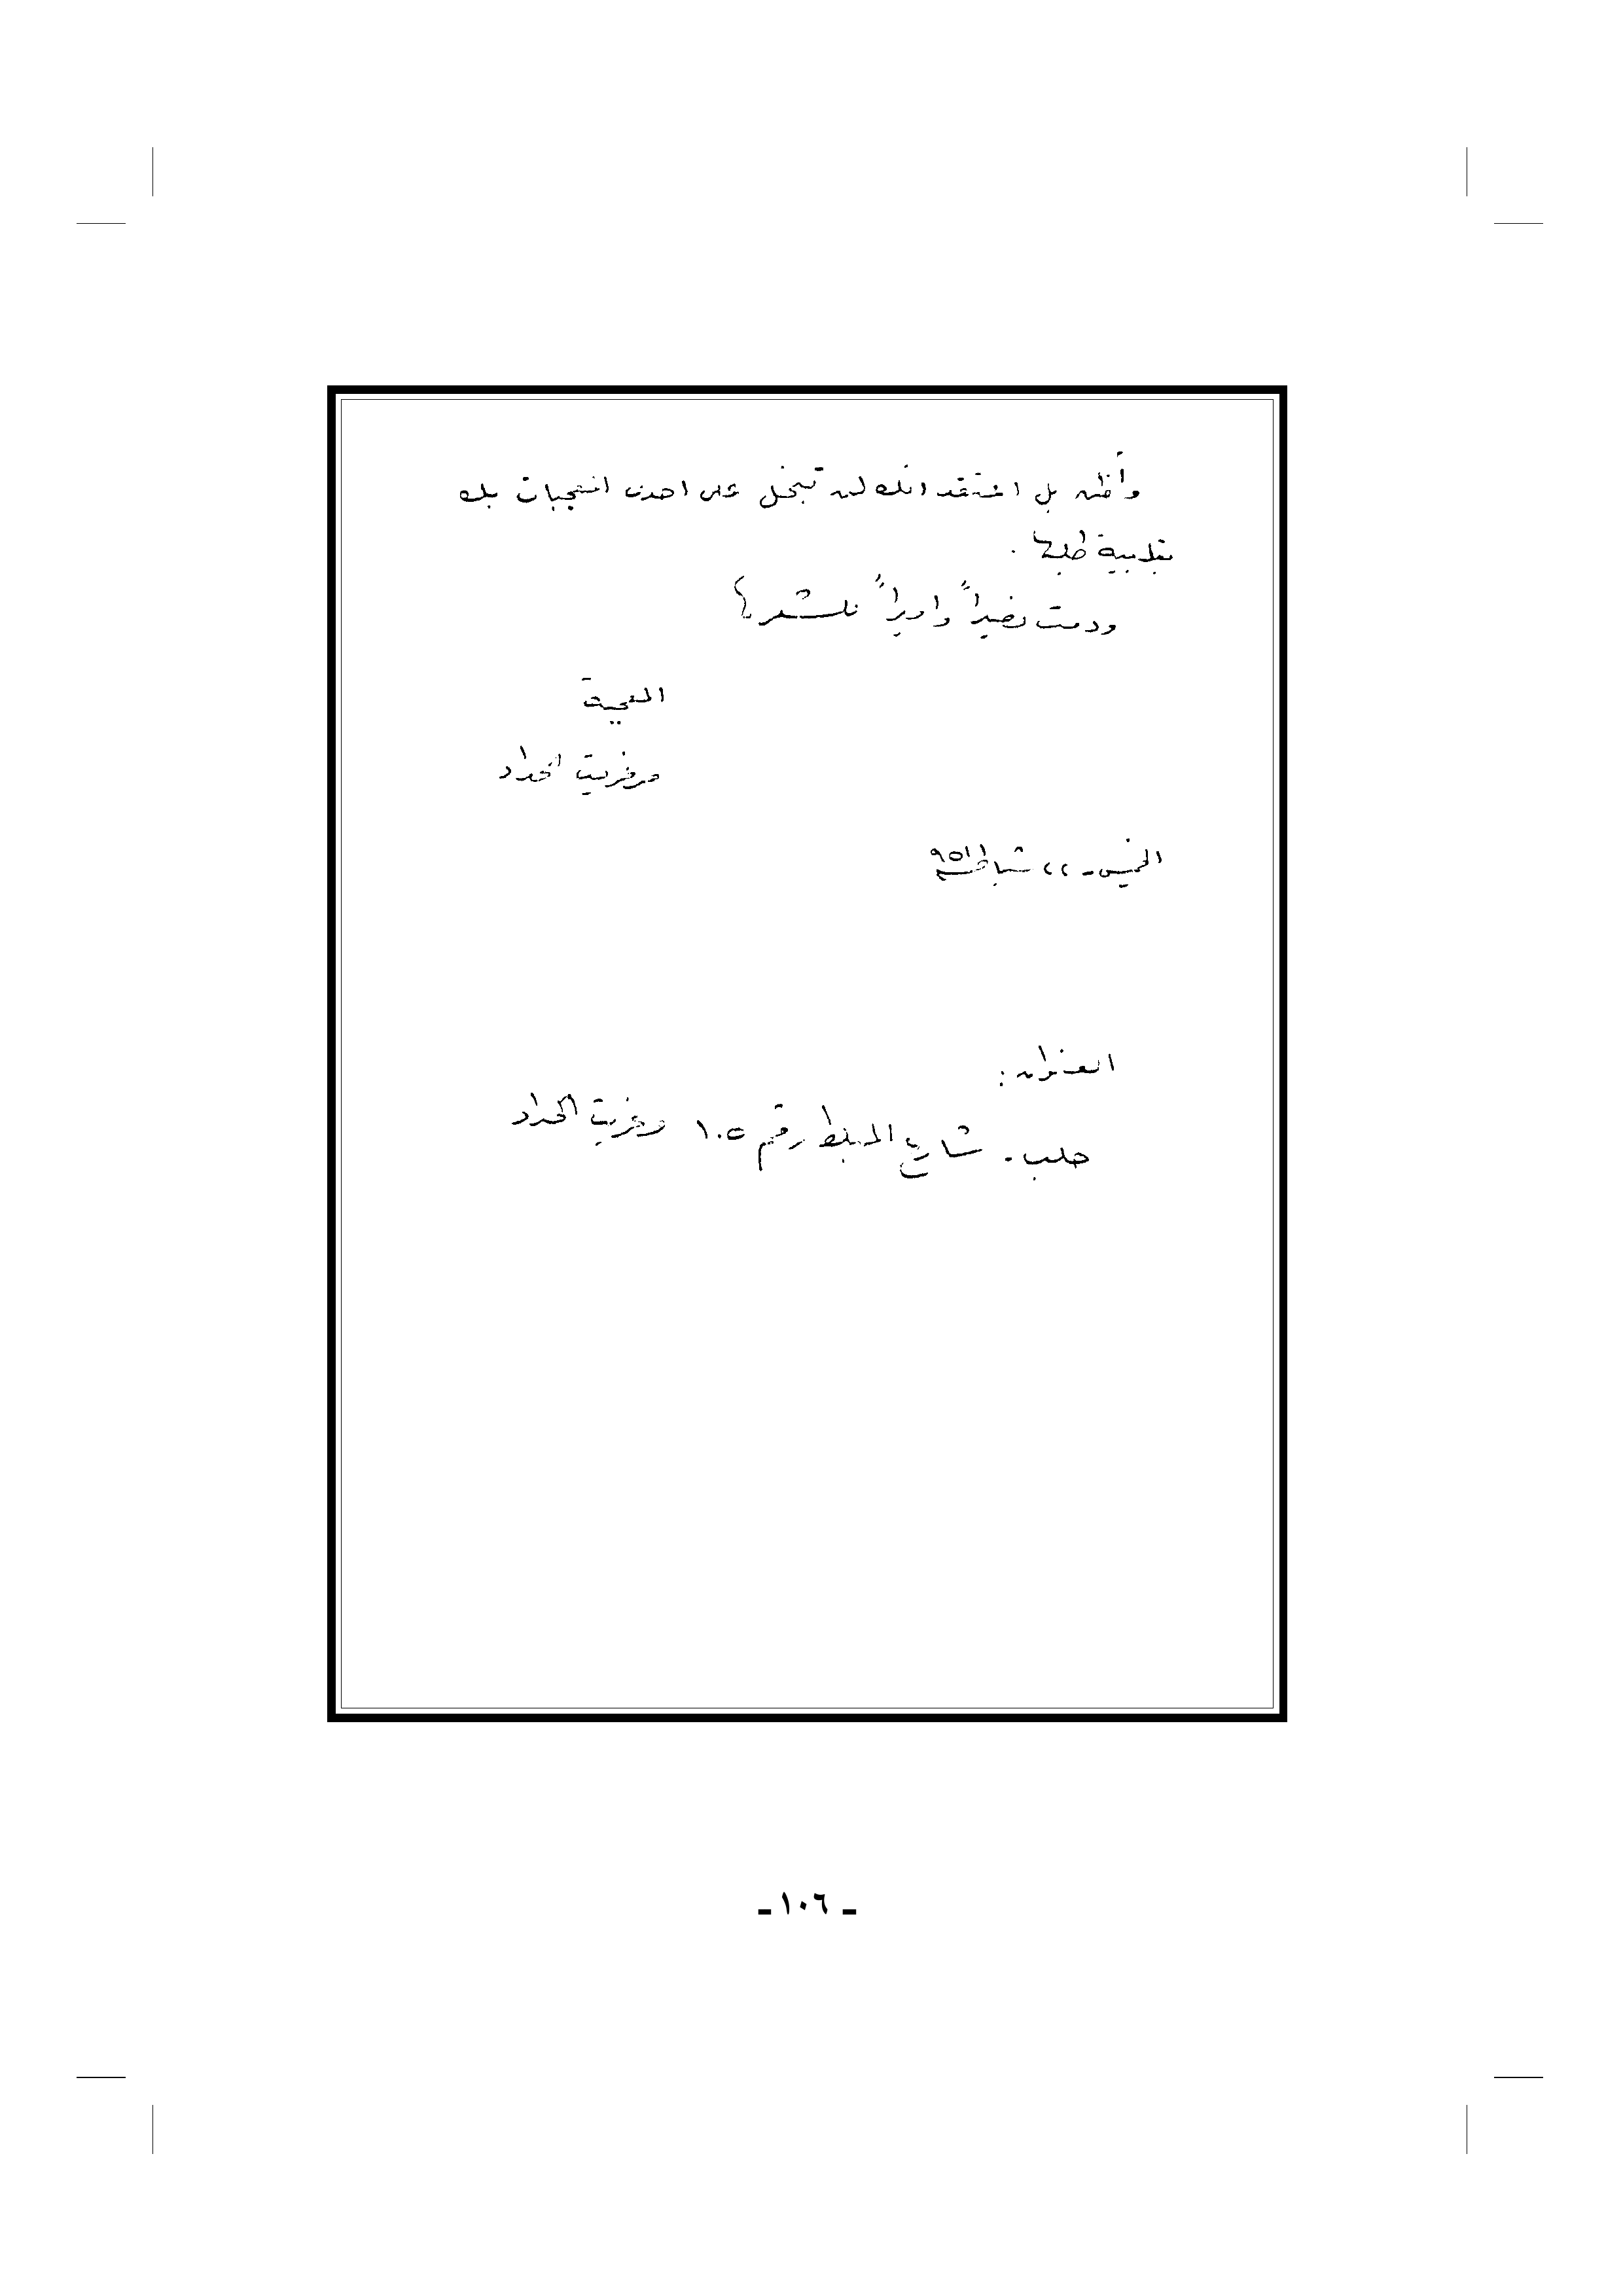 وأظن بل اعتقد انك لن تبخل على احدى المعجبات بك
بتلبية طلبها .
ودمت نصيراً واميراً للشعر
المعجبة
مرغريت الحداد
الخميس - ٢٢ شباط ٩٥١
العنوان :
حلب - شارع المبلط رقم ١٠٥ مرغريت الحداد
- ١٠٦ -